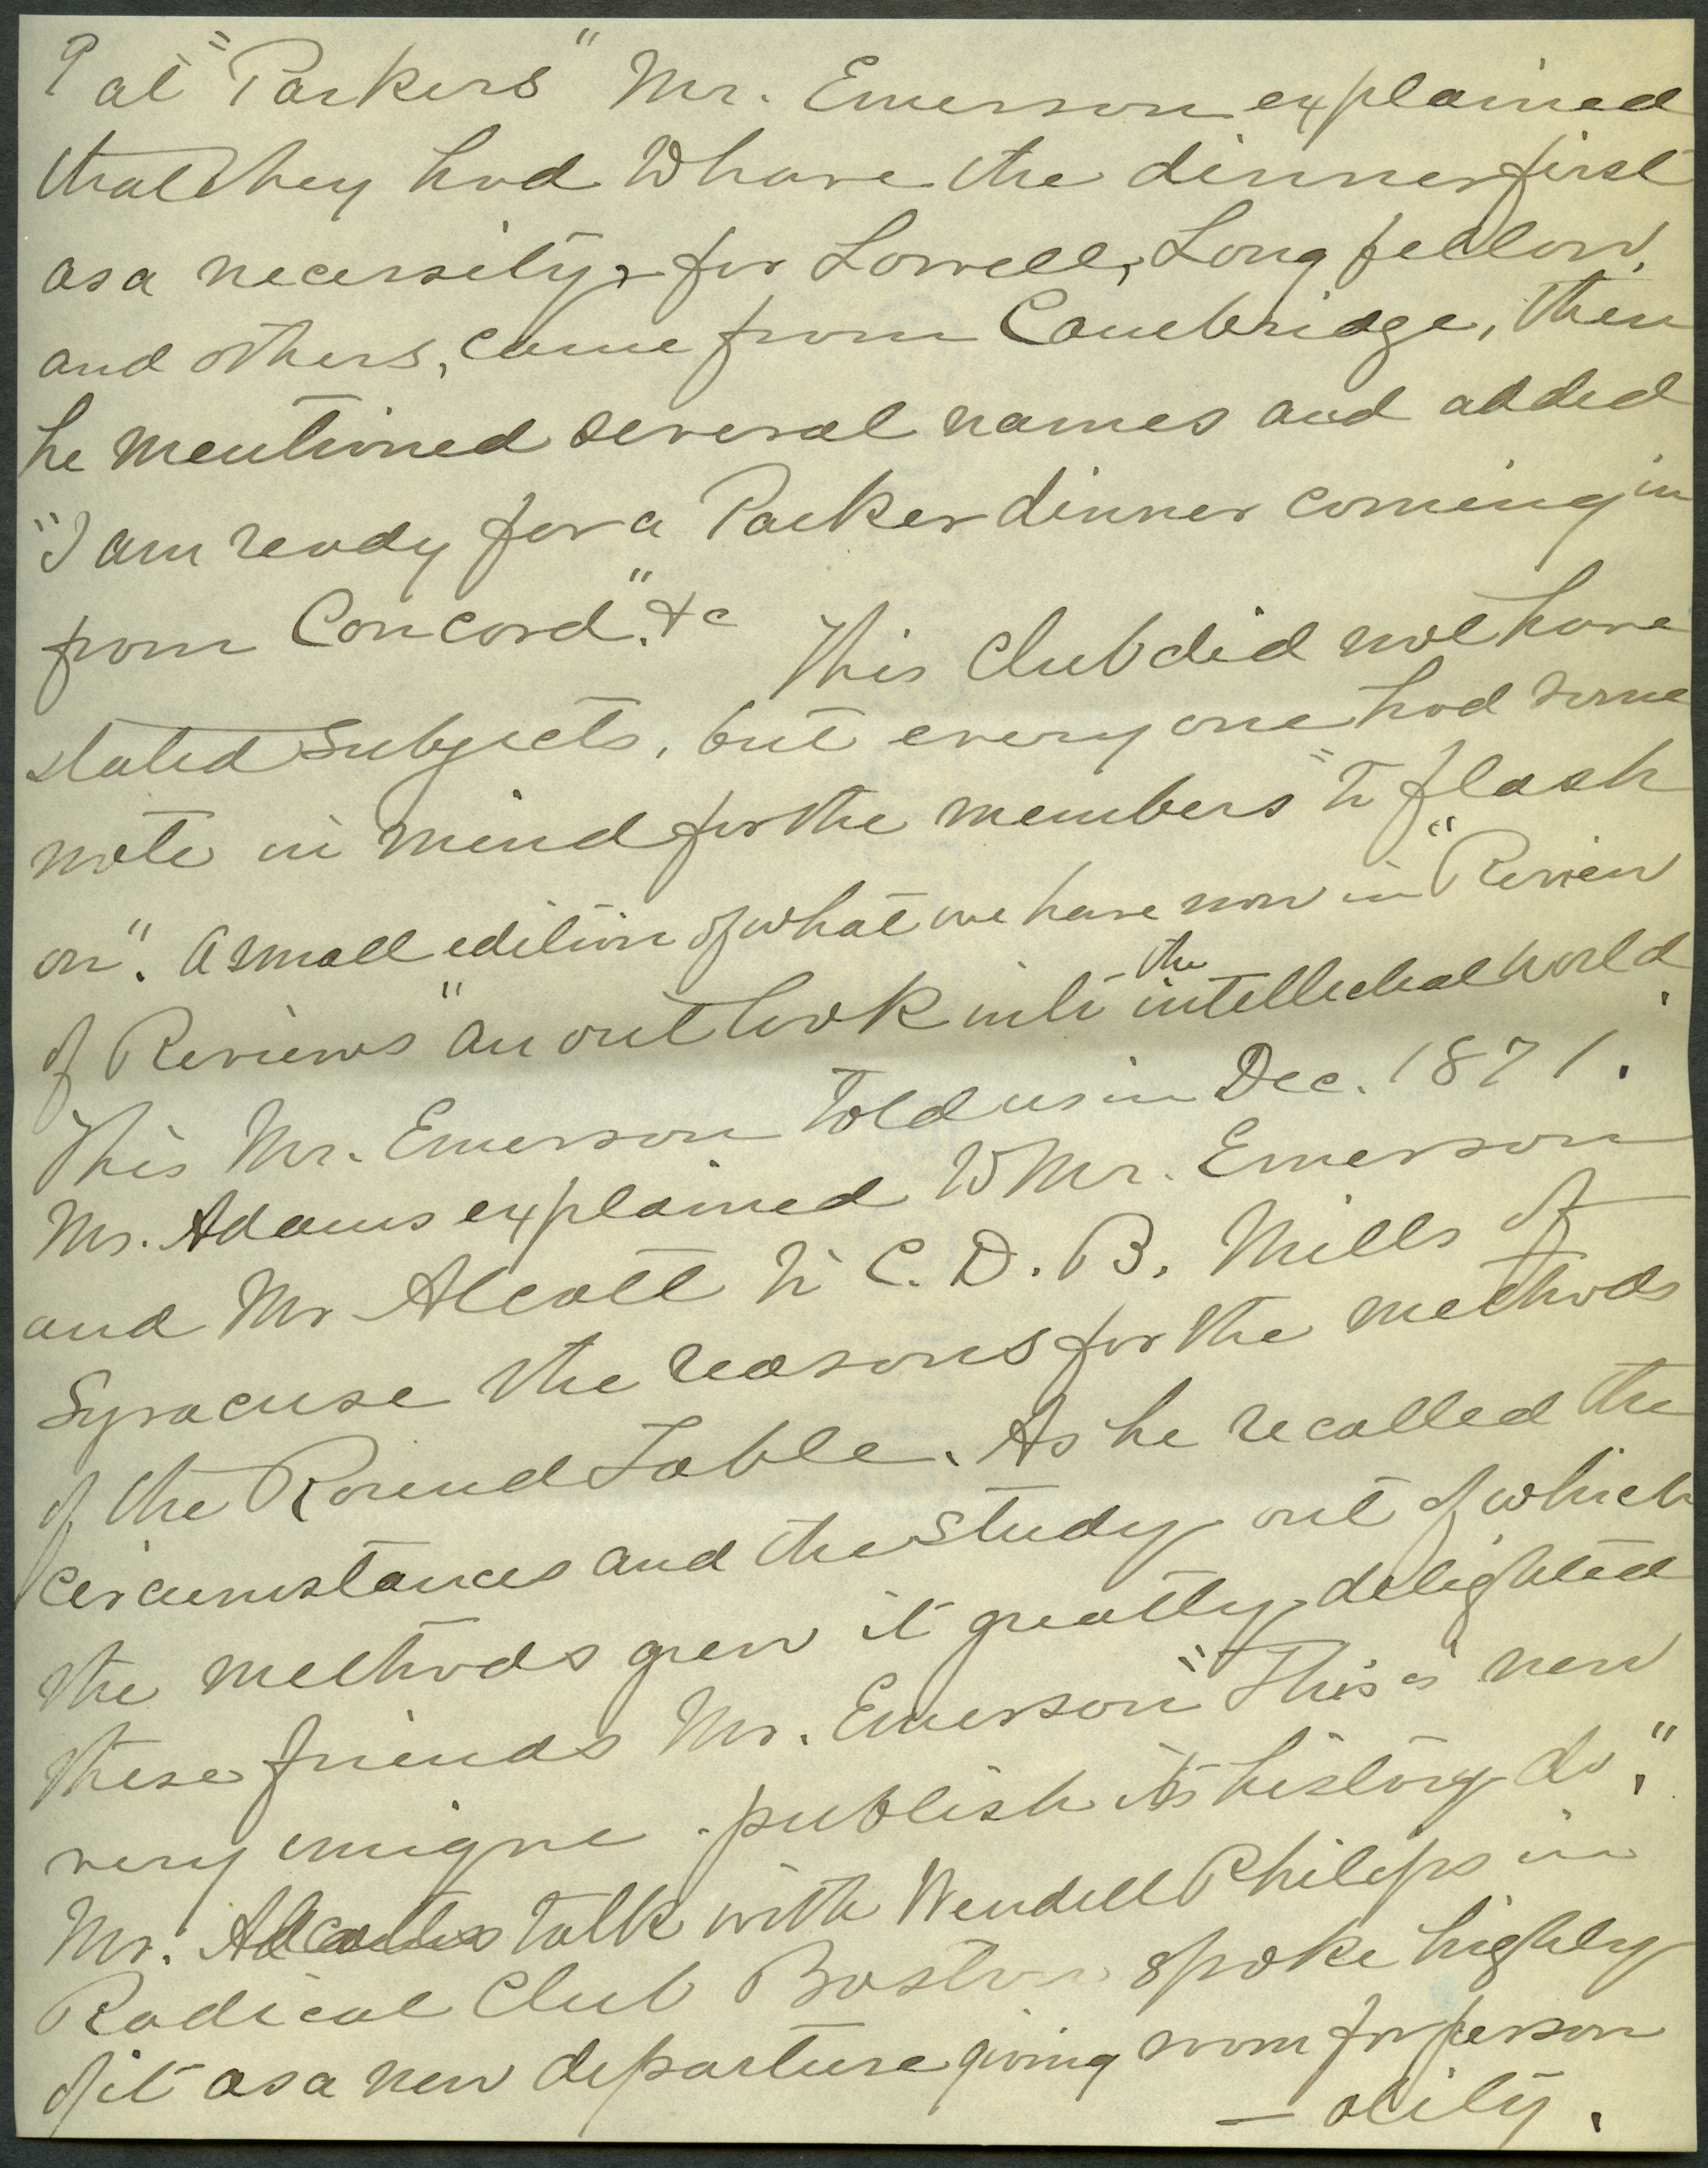 ? at "Parkers" Mr. Emerson explained
that they had to have the dinner first
as a necessity, for Lowell, Longfellow,
and others, came from Cambridge, then
he mentioned several names and added
"I am ready for a Parker dinner coming in
from Concord". &c This Club did not have
stated subjects, but every one had some
note in mind for the members "to flash
on". A small edition of what we have now in "Review
of Reviews" an out look into the intellectual world.
This Mr. Emerson told us in Dec. 1871.
Mr. Adams explained to Mr. Emerson
and Mr Alcott to C. D. B. Mills of
Syracuse the reasons for the methods
of the Round Table. As he recalled the
circumstances and the study out of which
the methods grew it greatly delighted
these friends Mr. Emerson "This is new
very unique. publish its history do."
Mr. Alcotts talk with Wendell Philips in
Radical Club Boston spoke highly
of it as a new departure giving room for person
– ality.